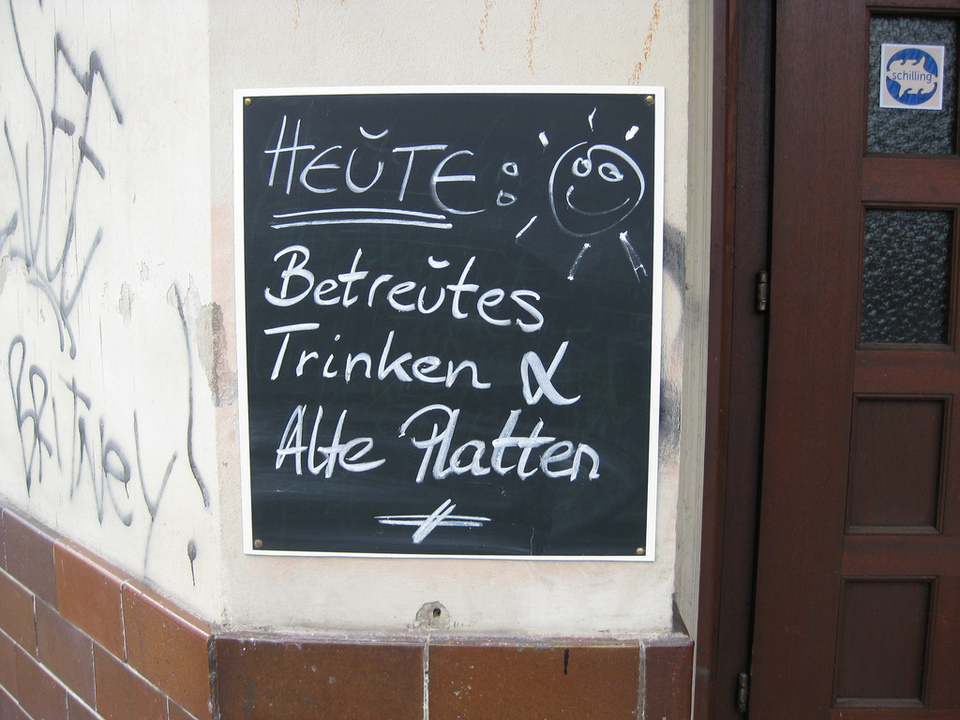 HEUTE:
Betreutes
Trinken &
Alte Platten
schilling
BRITNEY!